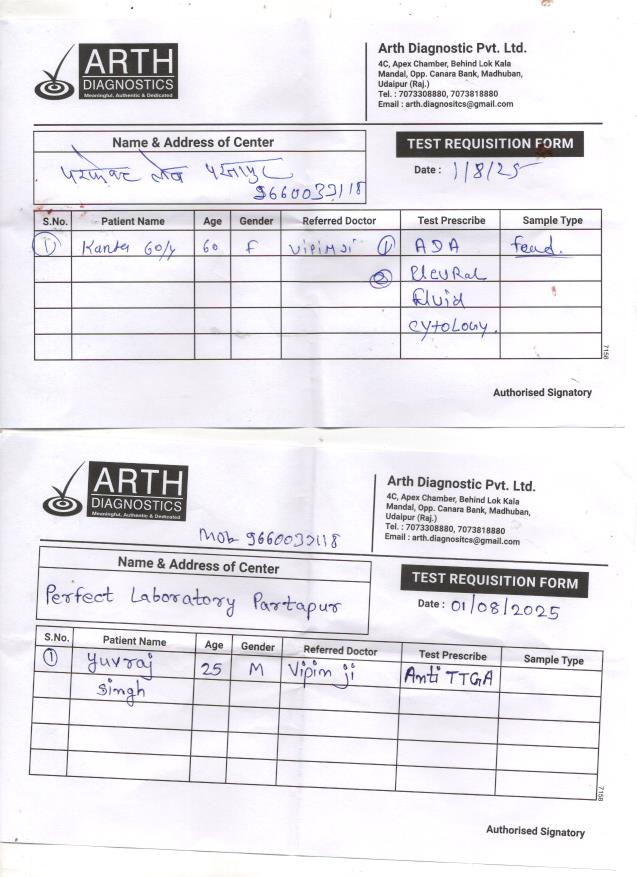 ARTH
DIAGNOSTICS
Meaningful, Authentic & Dedicated
Arth Diagnostic Pvt. Ltd.
4C, Apex Chamber, Behind Lok Kala
Mandal, Opp. Canara Bank, Madhuban,
Udaipur (Raj.)
Tel. : 7073308880, 7073818880
Email : arth.diagnositcs@gmail.com
Name & Address of Center
लेब
TEST REQUISITION FORM
Date : 1/8/25
S.No. Patient Name Age Gender Referred Doctor Test Prescribe Sample Type
① Kanta 60/y 60 F VIPIN JI ① ADA
②
Fluid
CYTOLOGY.
7158
Authorised Signatory
ARTH
DIAGNOSTICS
Meaningful, Authentic & Dedicated
Arth Diagnostic Pvt. Ltd.
4C, Apex Chamber, Behind Lok Kala
Mandal, Opp. Canara Bank, Madhuban,
Udaipur (Raj.)
Tel. : 7073308880, 7073818880
Email : arth.diagnositcs@gmail.com
Mob
Name & Address of Center
Perfect Laboratory Partapur
TEST REQUISITION FORM
Date : 01/08/2025
S.No. Patient Name Age Gender Referred Doctor Test Prescribe Sample Type
① Yuvraj 25 M Vipin ji Anti TTGA
Singh
7158
Authorised Signatory